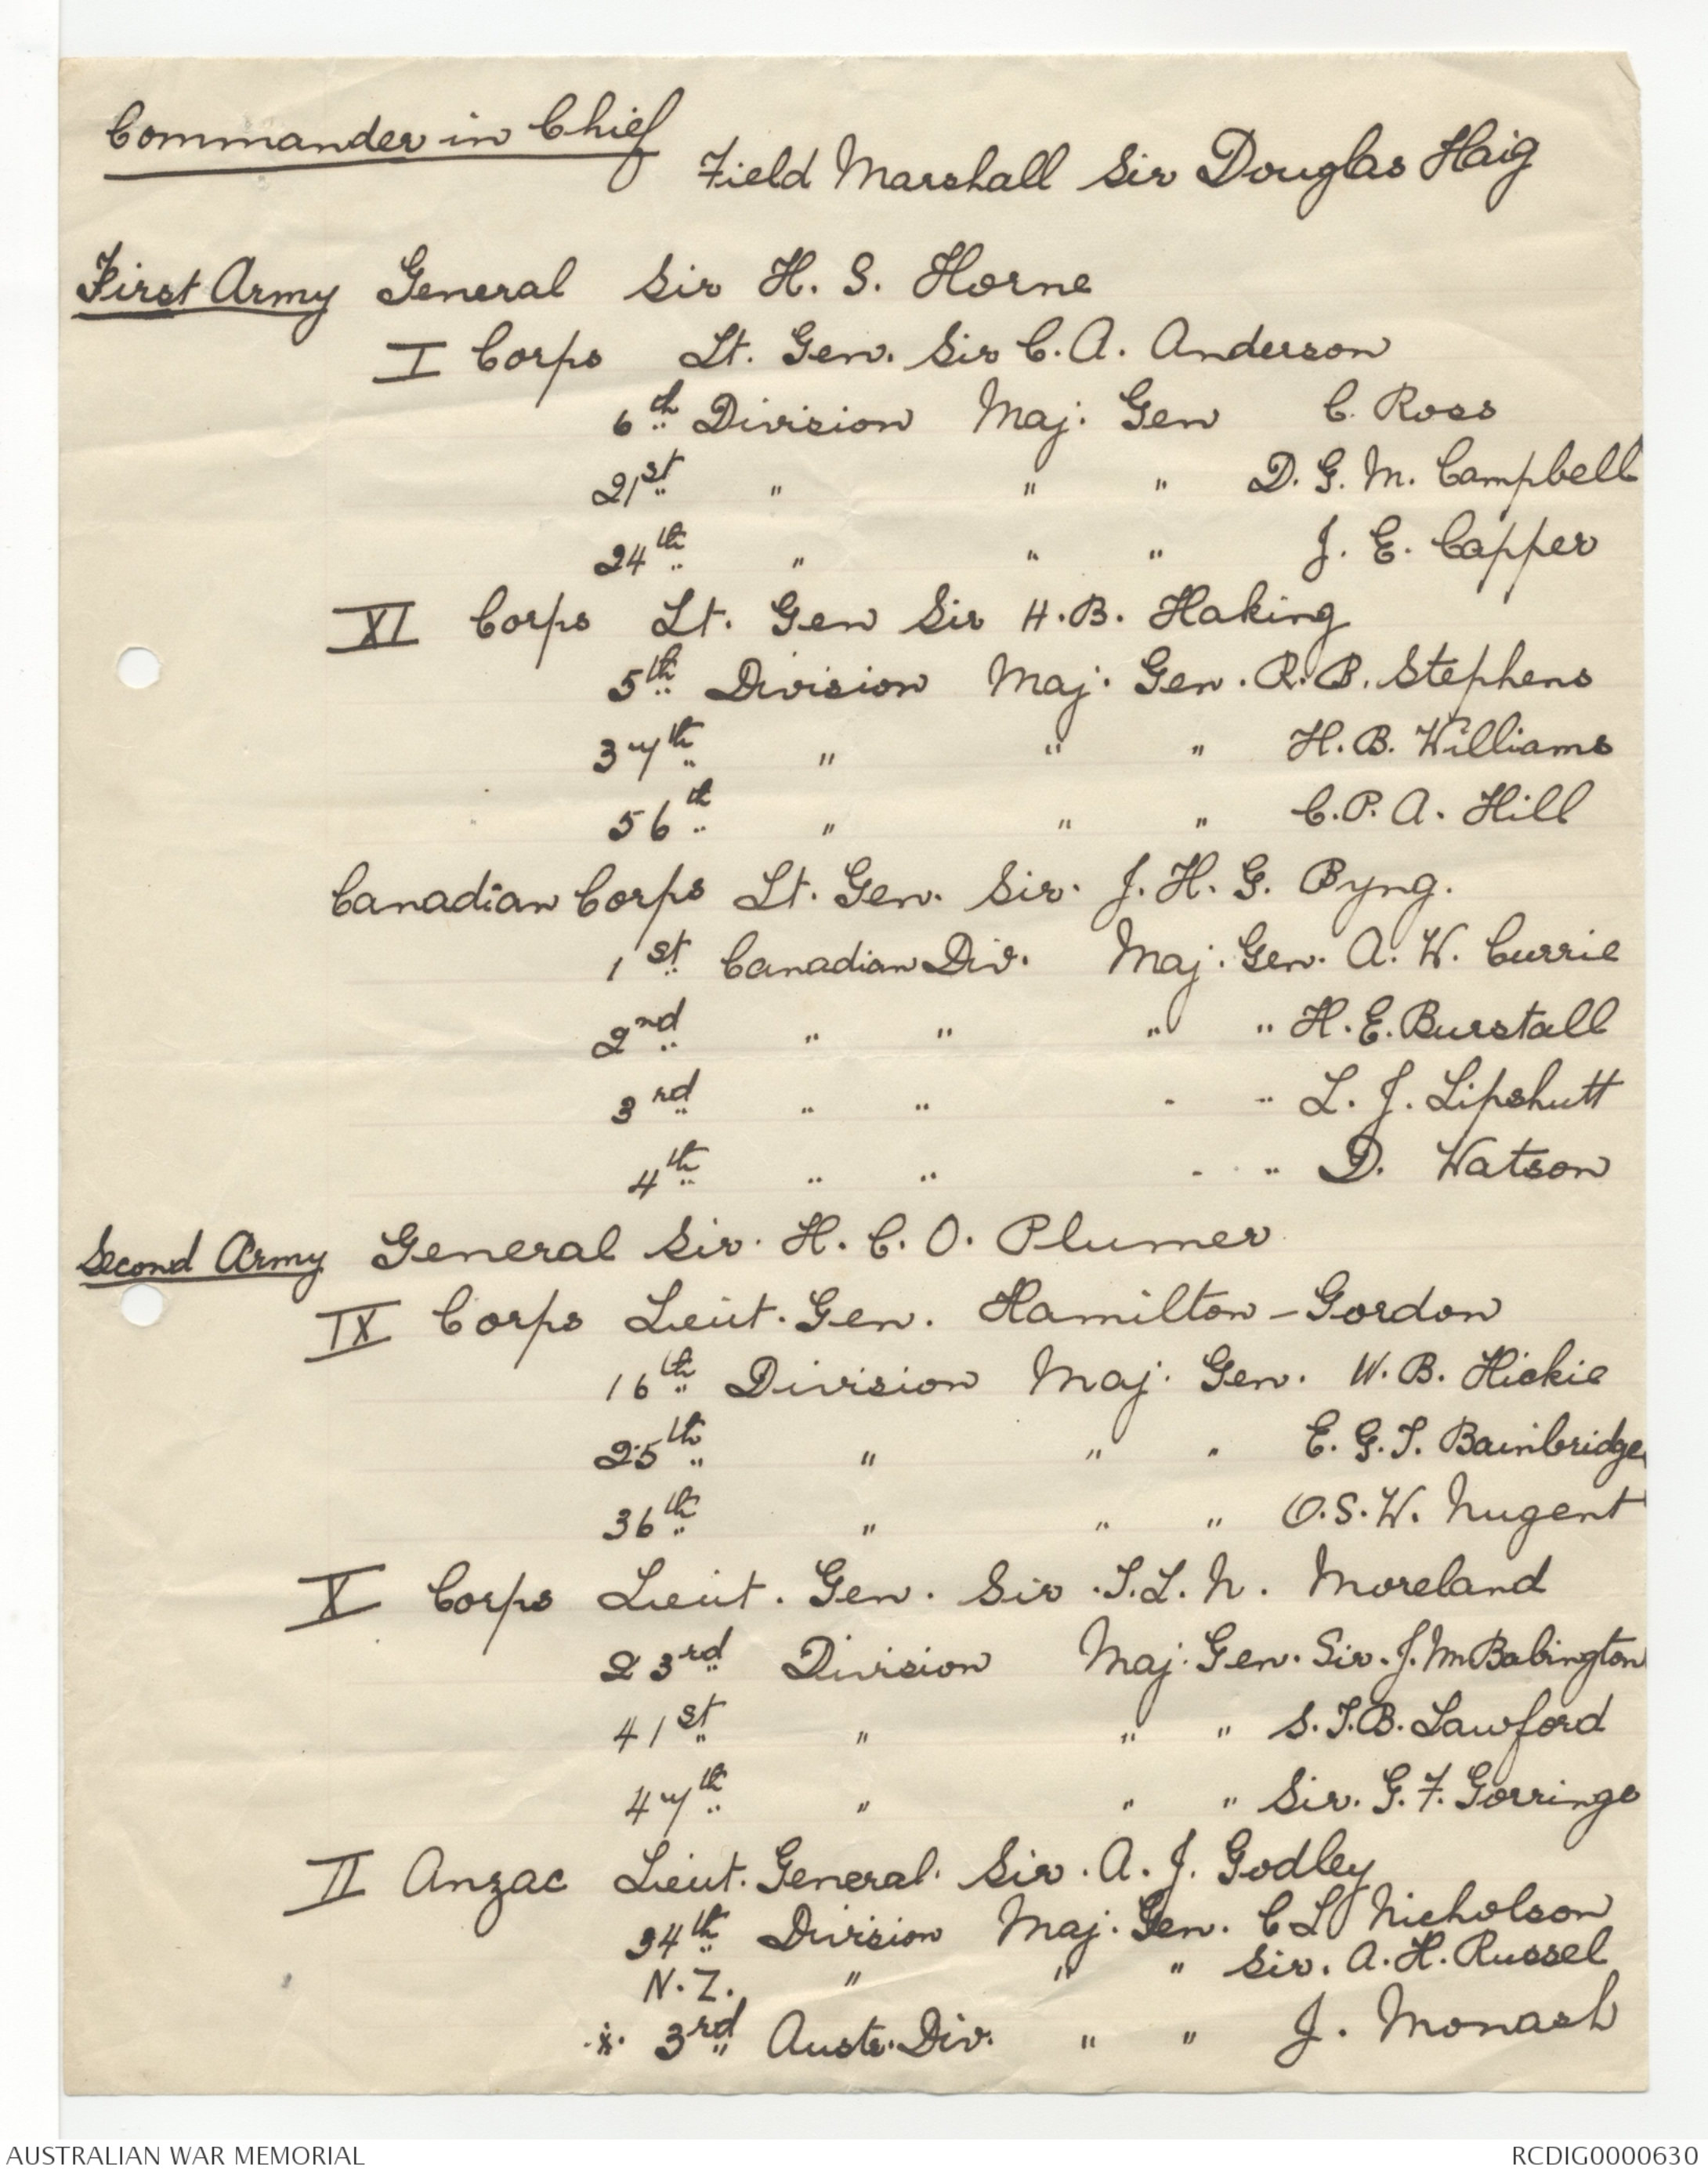 Commander in Chief
Field Marshall Sir Douglas Haig
First Army General Sir H. S. Horne
I Corps Lt. Gen. Sir C. A. Anderson
6th Division Maj. Gen C. Ross
21st " " " D. G. M. Campbell
24th " " " J. E. Capper
XI Corps Lt. Gen Sir H. B. Haking
5th Division Maj. Gen. R. B. Stephens
37th " " " H. B. Williams
56th " " " C. P. A. Hill
Canadian Corps Lt. Gen. Sir. J. H. G. Byng.
1st Canadian Div. Maj. Gen. A. W. Currie
2nd " " " " H. E. Burstall
3rd " " " " L. J. Lipshutt
4th " " " " D. Watson
Second Army General Sir. H. C. O. Plumer
IX Corps Leiut. Gen. Hamilton-Gordon
16th Division Maj. Gen. W. B. Hickie
25th " " " E. G. T. Bainbridge
36th " " " O. S. W. Nugent
X Corps Leiut. Gen. Sir. T. L. N. Moreland
23rd Division Maj. Gen. Sir. J. M Babington
41st " " " S. T. B. Lawford
47th " " " Sir. G. F. Gorringe
II Anzac Leiut. General. Sir. A. J. Godley
34th Division Maj. Gen. C L Nicholson
N. Z. " " " Sir. A. H. Russel
x 3rd Austr. Div. " " J. Monash
AUSTRALIAN WAR MEMORIAL
RCDIG0000630